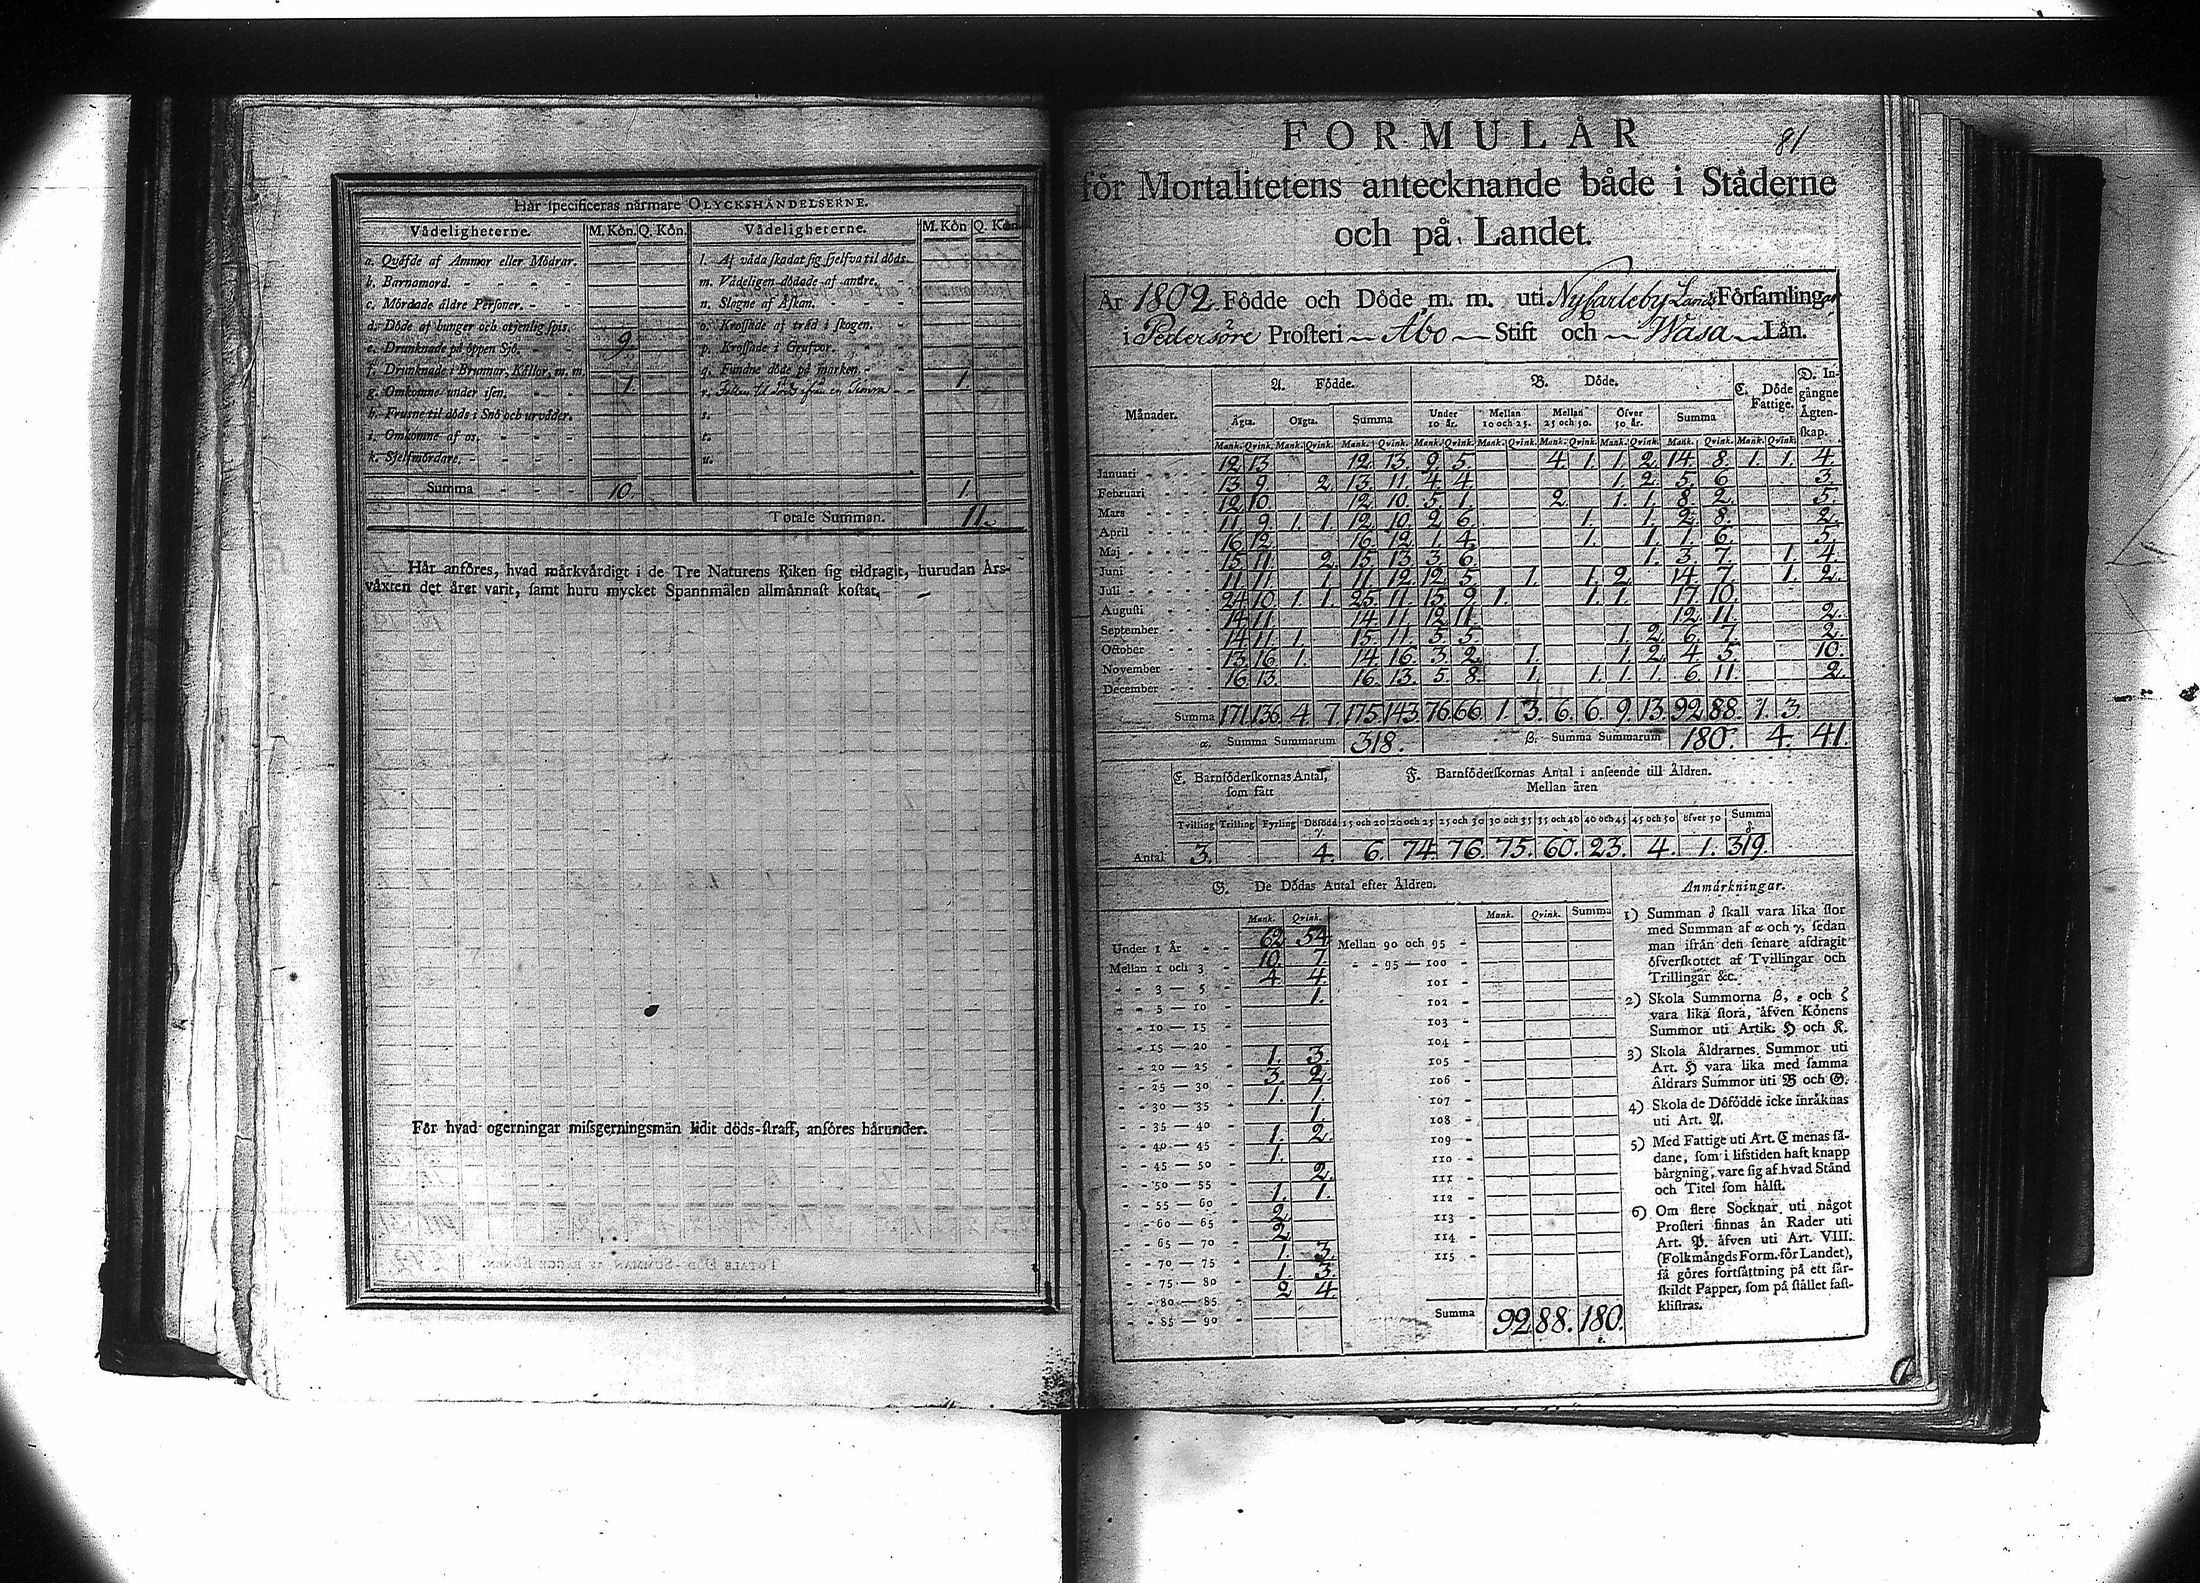 Här specificeras närmare OLYCKSHÄNDELSERNE.
Vådeligheterne. M. Kön. Q. Kön. Vådeligheterne. M. Kön Q. Kön
a. Quäfde af Ammor eller Mödrar. l. Af våda skadat sig sjelfva til döds.
b. Barnamord. - - - - m. Vådeligen dödade af andre. -
c. Mördade äldre Personer. - - n. Slagne af Åskan. - -
d. Döde af hunger och otjenlig spis. o. Krossade af träd i skogen. - -
e. Drunknade på öppen Sjö. - - 9. p. Krossade i Grufvor. - -
f. Drunknade i Brunnar, Källor, m. m. q. Fundne döde på marken. - -
g. Omkomne under isen. - - 1. r. Fallen til döds ifrån en 1.
h. Frusne til döds i Snö och urväder. s.
i. Omkomne af os. - - - - t.
k. Sjelfmördare. - - - - u.
Summa - - - 10. 1.
Totale Summan. 11.
Här anföres, hvad märkvärdigt i de Tre Naturens Riken sig tildragit, hurudan Års-
växten det året varit, samt huru mycket Spannmålen allmännast kostat.
För hvad ogerningar missgerningsmän lidit döds-straff, anföres härunder.
FORMULÄR 81
för Mortalitetens antecknande både i Städerne
och på Landet.
År 1802 Födde och Döde m. m. uti Nycarleby Lands Församling
i Pedersöre Prosteri Åbo Stift och Wasa Län.
Månader. A. Födde. B. Döde. C. Döde Fattige. D. Ingångne Ägtenskap.
Ägta. Oägta. Summa Under 10 år. Mellan 10 och 25. Mellan 25 och 50. Öfver 50 år. Summa
Mank. Qvink. Mank. Qvink. Mank. Qvink. Mank. Qvink. Mank. Qvink. Mank. Qvink. Mank. Qvink. Mank. Qvink. Mank. Qvink.
Januari - - - 12 13. 12. 13. 9. 5. 4. 1. 1. 2. 14. 8. 1. 1. 4.
Februari - - - 13. 9. 2. 13. 11. 4. 4. 1. 2. 5. 6. 3.
Mars - - - 12 10. 12. 10. 5. 1. 2. 1. 1. 8. 2. 5.
April - - - 11. 9. 1. 1. 12. 10. 2. 6. 1. 1. 2. 8. 2.
Maj - - - 16. 12. 16. 12. 1. 4. 1. 1. 1. 6. 5.
Juni - - - 15. 11. 2. 15. 13. 3. 6. 1. 3. 7. 1. 4.
Juli - - - 11. 11. 1. 11. 12. 12. 5. 1. 1. 2. 14. 7. 1. 2.
Augusti - - - 24. 10. 1. 1. 25. 11. 15. 9. 1. 1. 1. 17. 10.
September - - - 14. 11. 14. 11. 12. 11. 12. 11. 2.
October - - - 14. 11. 1. 15. 11. 5. 5. 1. 2. 6. 7. 2.
November - - - 13. 16. 1. 14. 16. 3. 2. 1. 1. 2. 4. 5. 10.
December - - - 16. 13. 16. 13. 5. 8. 1. 1. 1. 1. 6. 11. 2.
Summa 171. 136. 4. 7. 175. 143. 76. 66. 1. 3. 6. 6. 9. 13. 92. 88. 1. 3.
α. Summa Summarum 318. β. Summa Summarum 180. 4. 41.
E. Barnföderskornas Antal, som fått F. Barnföderskornas Antal i anseende till Åldren.
Mellan åren
Tvilling Trilling Fyrling Döfödd γ. 15 och 20 20 och 25 25 och 30 30 och 35 35 och 40 40 och 45 45 och 50 öfver 50 Summa δ
Antal 3. 4. 6. 74. 76. 75. 60. 23. 4. 1. 319.
G. De Dödas Antal efter Åldren.
Mank. Qvink. Mank. Qvink. Summa
Under 1 År - - 62. 54. Mellan 90 och 95 -
Mellan 1 och 3 - 10. 7. - - 95 — 100 -
- - 3 — 5 - 4. 4. 101 -
- - 5 — 10 - 1. 102 -
- - 10 — 15 - 103 -
- - 15 — 20 - 104 -
- - 20 — 25 - 1. 3. 105 -
- - 25 — 30 - 3. 2. 106 -
- - 30 — 35 - 1. 1. 107 -
- - 35 — 40 - 1. 108 -
- - 40 — 45 - 1. 2. 109 -
- - 45 — 50 - 1. 110 -
- - 50 — 55 - 2. 111 -
- - 55 — 60 - 1. 1. 112 -
- - 60 — 65 - 2. 113 -
- - 65 — 70 - 2. 114 -
- - 70 — 75 - 1. 3. 115 -
- - 75 — 80 - 1. 3.
- - 80 — 85 - 2 4.
- - 85 — 90 -
Summa 92. 88. 180.
ε.
Anmärkningar.
1) Summan δ skall vara lika stor
med Summan af α och γ, sedan
man ifrån den senare afdragit
öfverskottet af Tvillingar och
Trillingar &c.
2) Skola Summorna β, ε och ζ
vara lika stora, äfven Könens
Summor uti Artik. H och K.
3) Skola Åldrarnes Summor uti
Art. H vara lika med samma
Åldrars Summor uti B och G.
4) Skola de Döfödde icke inräknas
uti Art. A.
5) Med Fattige uti Art. C menas så-
dane, som i lifstiden haft knapp
bärgning, vare sig af hvad Stånd
och Titel som hälst.
6) Om flere Socknar uti något
Prosteri finnas än Rader uti
Art. P. äfven uti Art. VIII.
(Folkmängds Form. för Landet),
så göres fortsättning på ett sär-
skildt Papper, som på stället fast-
klistras.